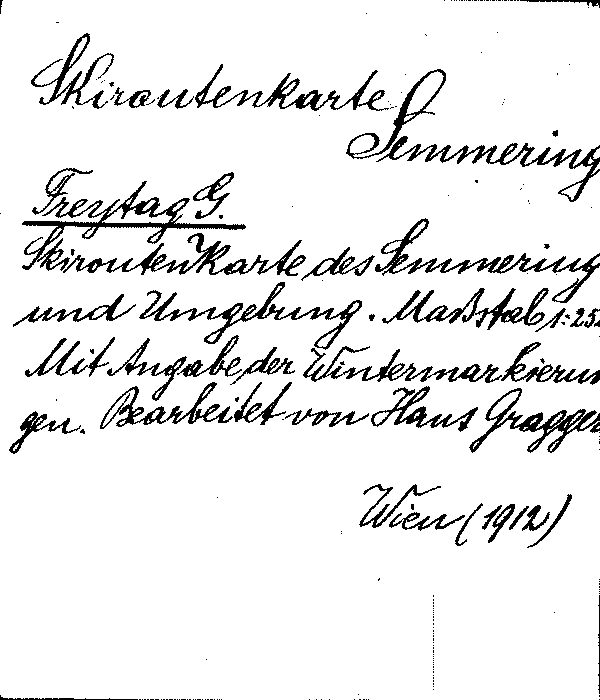 Skiroutenkarte
Semmering
Freytag G.
Skirouten Karte des Semmering
und Umgebung. Maßstab 1:25
Mit Angabe der Wintermarkierun
gen. Bearbeitet von Hans Gragger
Wien (1912)